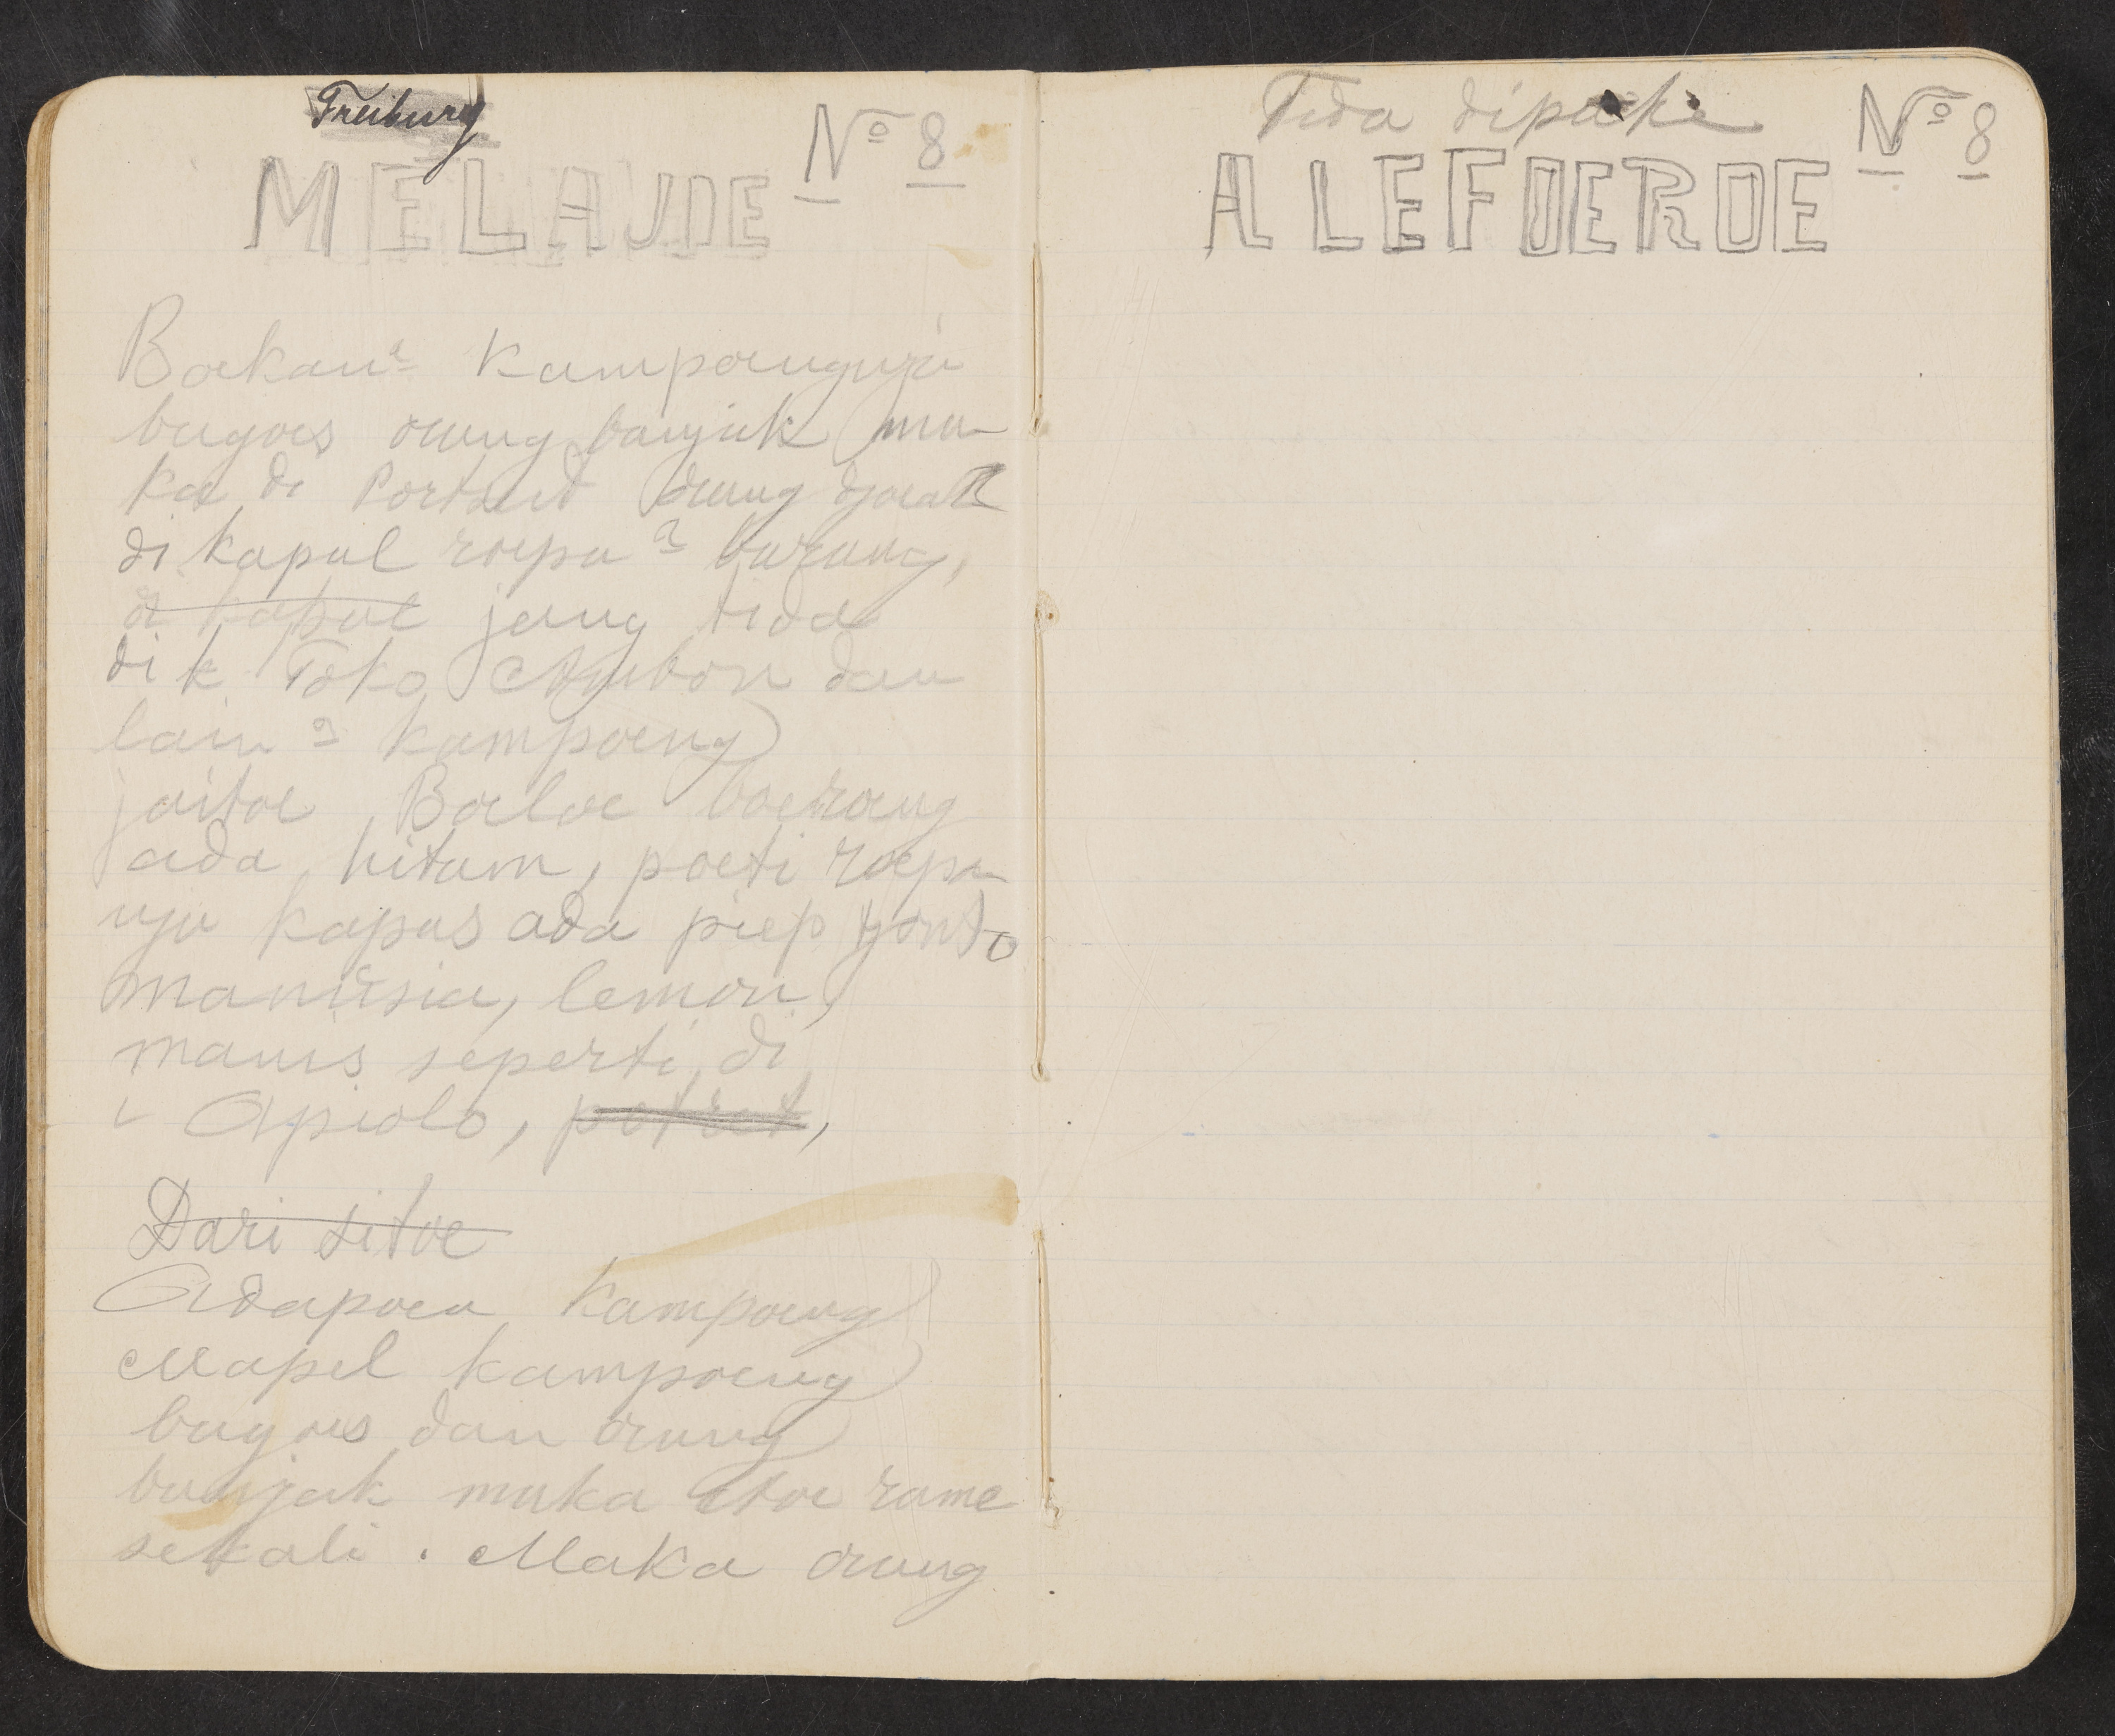 Freiburg
No 8
MELAJOE
Boekan2 Kampoengnja
bagoes orang banjak ma-
ka di Portseid orang djoeal
di kapal roepa2 barang,
di kapal jang tida
di k Toko Ambon dan
lain2 kampoeng
jaitoe Boeloe boeroeng
ada hitam, poeti roepa-
nja kapas ada piep tjonto
manusia, lemon
manis seperti di
i Apiolo, potret,
Dari sitoe
Adapoen kampoeng
Napel kampoeng
bagoes dan orang
banjak maka itoe rame
sekali. Maka orang
Tida dipake
No 8
ALEFOEROE